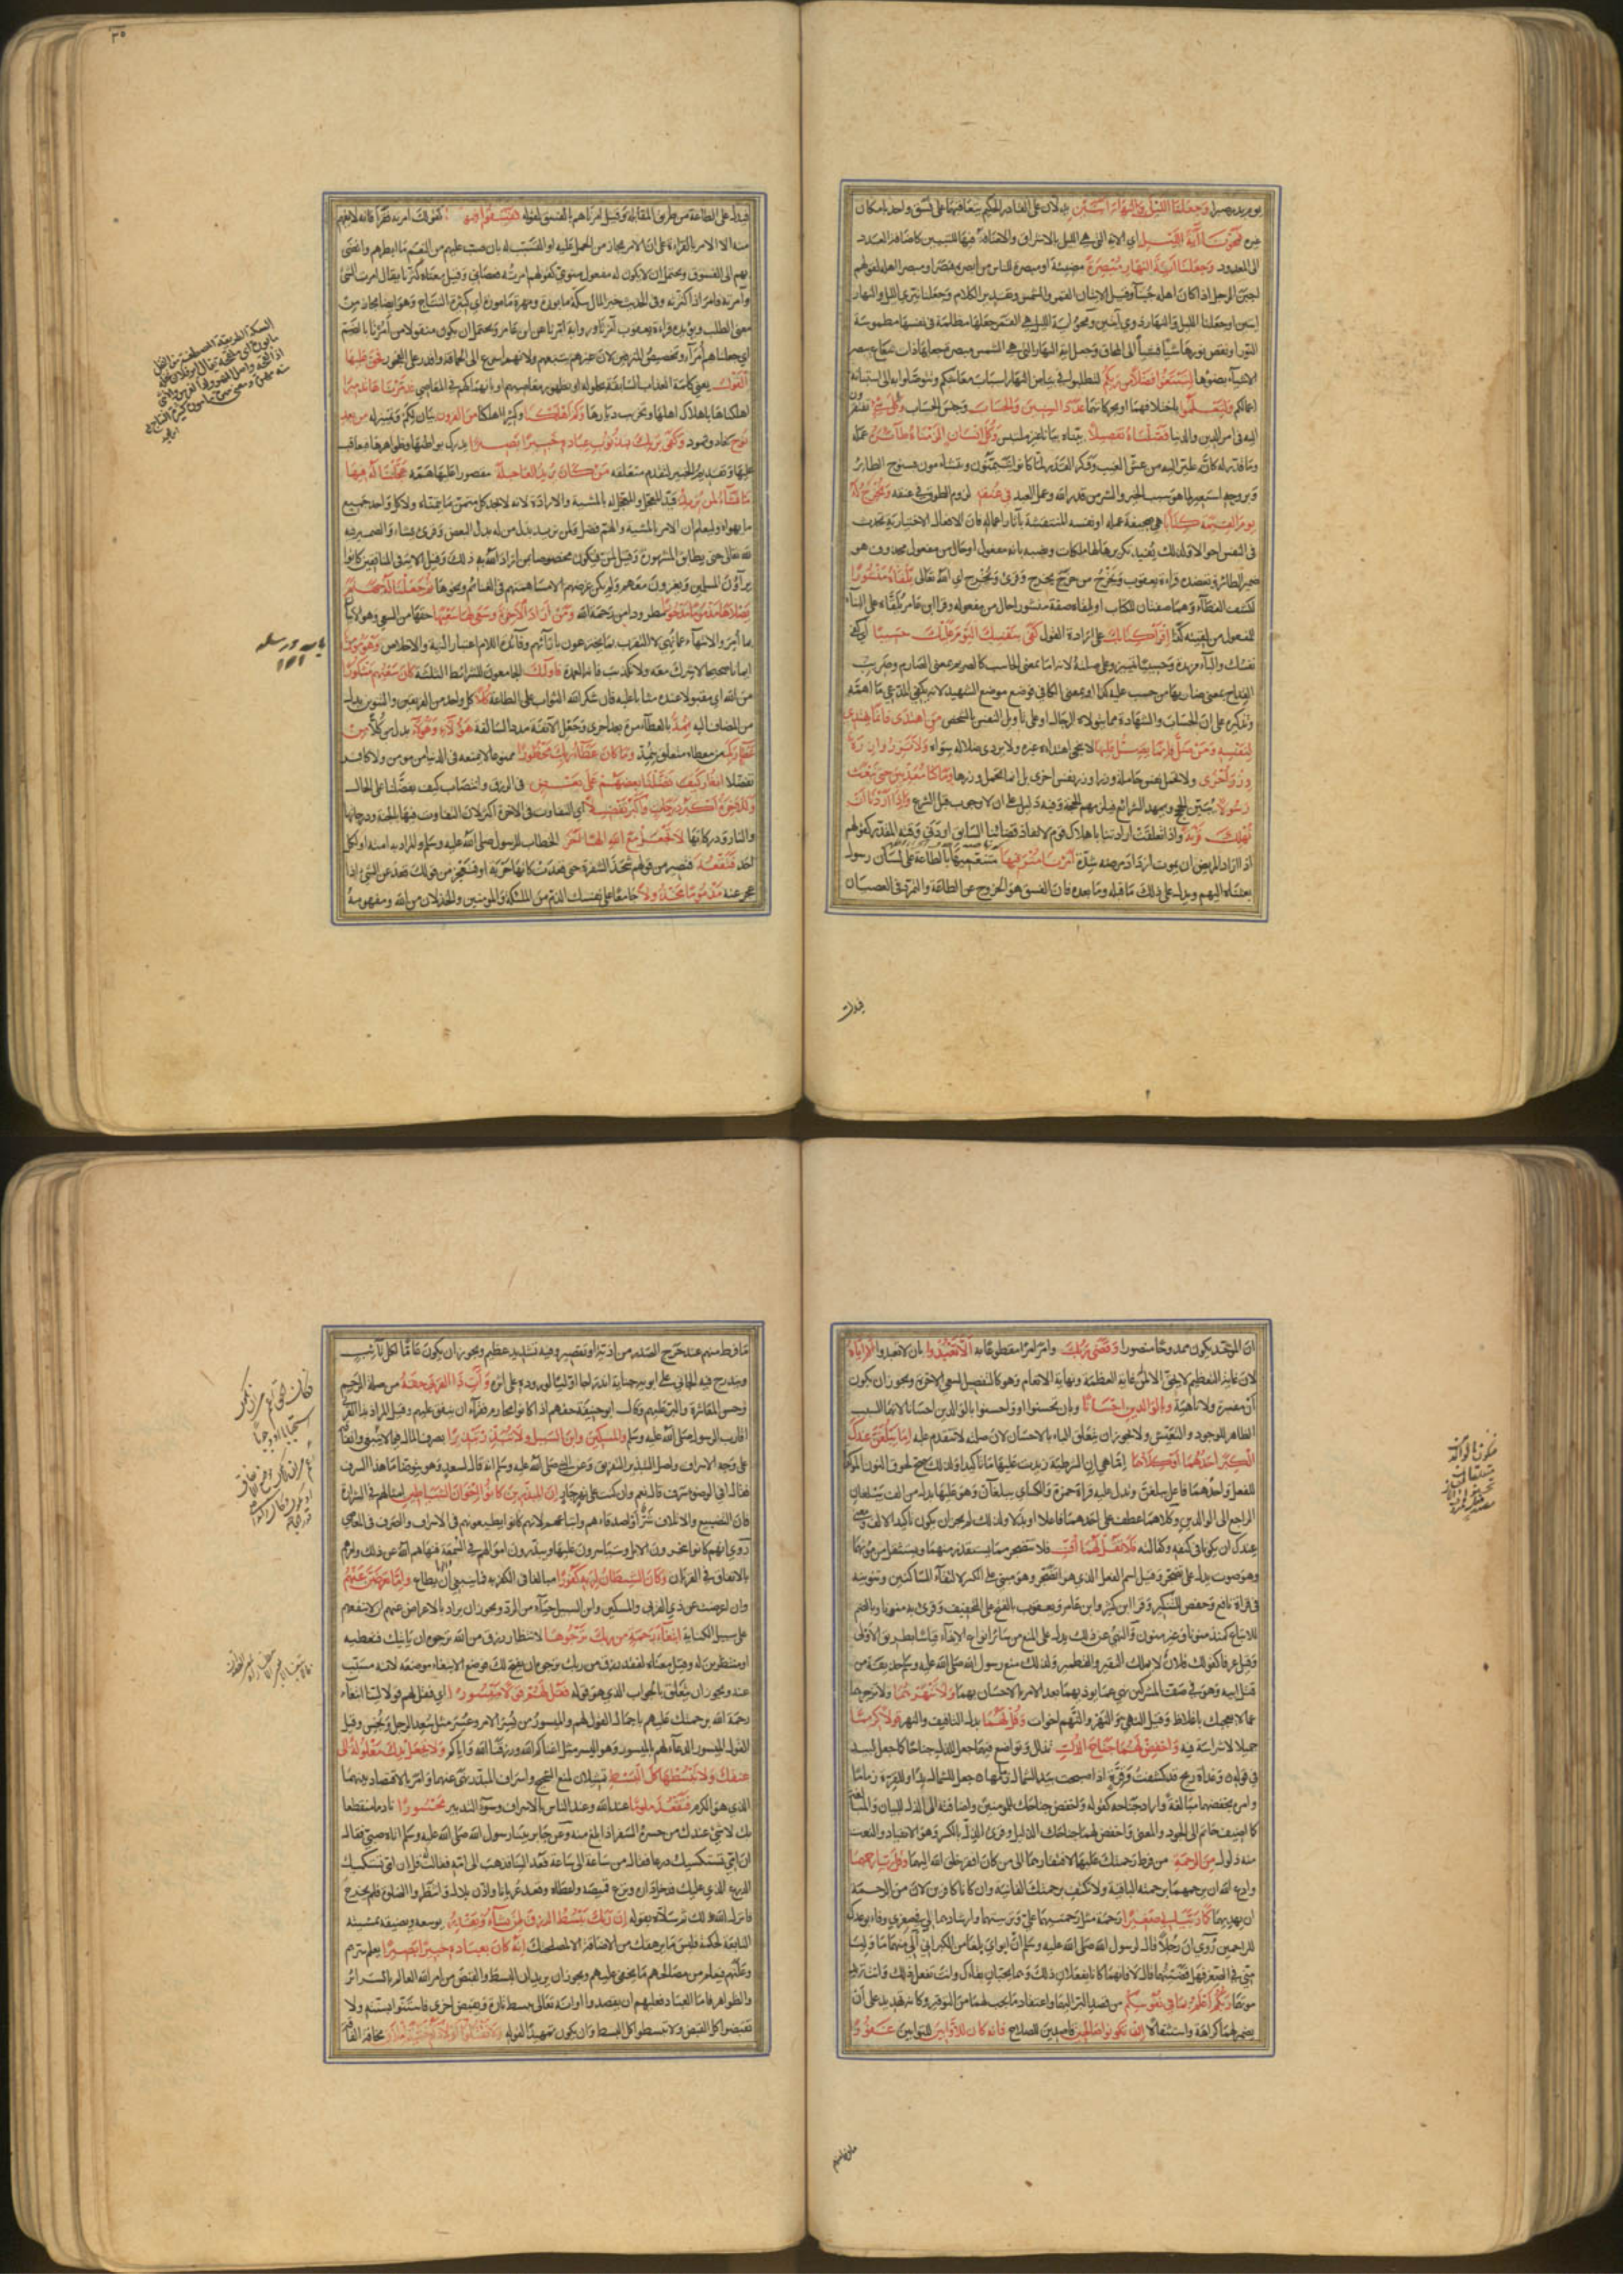 وجعلنا الليل والنهار آيتين تدلان على القادر الحكيم بتعاقبهما على نسق واحد بامكان
غيره فمحونا آية الليل اي الاية التي هي الليل بالاشراق والاضافة فيهما للتبيين كاضافة العدد
الى المعدود وجعلنا آية النهار مبصرة مضيئة او مبصرة للناس من ابصره فبصر او مبصرا اهله كقولهم
اجبن الرجل اذا كان اهله جبناء وقيل الايتان القمر والشمس وتقدير الكلام وجعلنا نيري الليل والنهار
آيتين او جعلنا الليل والنهار ذوي آيتين ومحو آية الليل التي هي القمر جعلها مظلمة في نفسها مطموسة
النور او نقص نورها شيئا فشيئا الى المحاق وجعل آية النهار التي هي الشمس مبصرة جعلها ذات شعاع تبصر
الاشياء بضوءها لتبتغوا فضلا من ربكم لتطلبوا في بياض النهار اسباب معاشكم وتتوصلوا به الى استبانة
اعمالكم ولتعلموا باختلافهما او بحركاتهما عدد السنين والحساب وجنس الحساب وكل شيء تفتقرون
اليه في امر الدين والدنيا فصلناه تفصيلا بيناه بيانا غير ملتبس وكل انسان الزمناه طائره عمله
وما قدر له كانه طير اليه من عش الغيب ووكر القدر لما كانوا يتيمنون ويتشاءمون بسنوح الطائر
وبروحه استعير لما هو سبب الخير والشر من قدر الله وعمل العبد في عنقه لزوم الطوق في عنقه ونخرج له
يوم القيمة كتابا هي صحيفة عمله او نفسه المنتقشة بآثار اعماله فان الافعال الاختيارية تحدث
في النفس احوالا ولذلك يفيد تكريرها لها ملكات ونصبه بانه مفعول او حال من مفعول محذوف هو
ضمير الطائر ويعضده قراءة يعقوب ويخرج من خرج يخرج وقرئ ويخرج اي الله تعالى يلقاه منشورا
لكشف الغطاء وهما صفتان للكتاب او يلقاه صفة ومنشورا حال من مفعوله وقرا ابن عامر يلقاه على البناء
للمفعول من لقيته كذا اقرأ كتابك على ارادة القول كفى بنفسك اليوم عليك حسيبا اي كفى
نفسك والباء مزيدة وحسيبا تمييز وعلى صلته لانه اما بمعنى الحاسب كالصريم بمعنى الصارم وضريب
القداح بمعنى ضاربها من حسب عليه كذا او بمعنى الكافي فوضع موضع الشهيد لانه يكفي المدعي ما اهمه
وتذكيره على ان الحساب والشهادة مما يتولاه الرجال او على تاويل النفس بالشخص من اهتدى فانما يهتدي
لنفسه ومن ضل فانما يضل عليها لا ينجي اهتداءه غيره ولا يردي ضلاله سواه ولا تزر وازرة
وزر اخرى ولا تحمل نفس حاملة وزرا وزر نفس اخرى بل انما تحمل وزرها وما كنا معذبين حتى نبعث
رسولا يبين الحجج ويمهد الشرائع فيلزمهم الحجة وفيه دليل على ان لا وجوب قبل الشرع واذا اردنا ان
نهلك قرية واذا تعلقت ارادتنا باهلاك قوم لانفاذ قضائنا السابق او دنى وقته المقدر كقولهم
اذا اراد المريض ان يموت ازداد مرضه شدة امرنا مترفيها متنعميها بالطاعة على لسان رسول
بعثناه اليهم ويدل على ذلك ما قبله وما بعده فان الفسق هو الخروج عن الطاعة والتمرد في العصيان
فيدل
فيدل على الطاعة من طريق المقابلة وقيل امرناهم بالفسق لقوله ففسقوا فيها كقولك امرته فقرأ فانه لا يفهم
منه الا الامر بالقراءة على ان الامر مجاز من الحمل عليه او التسبب له بان صب عليهم من النعم ما ابطرهم وافضى
بهم الى الفسوق ويحتمل ان لا يكون له مفعول منوي كقولهم امرته فعصاني وقيل معناه كثرنا يقال امرت الشئ
وآمرته فامر اذا كثرته وفي الحديث خير المال سكة مابورة ومهرة مامورة اي كثيرة النتاج وهو ايضا مجاز من
معنى الطلب ويؤيده قراءة يعقوب آمرنا ورواية امرنا عن ابي عمرو ويحتمل ان يكون منقولا من امر بالضم
اي جعلناهم امراء وتخصيص المترفين لان غيرهم يتبعهم ولانهم اسرع الى الحماقة واقدر على الفجور فحق عليها
القول يعني كلمة العذاب السابقة بحلوله او بظهور معاصيهم او بانهماكهم في المعاصي فدمرناها تدميرا
اهلكناها باهلاك اهلها وتخريب ديارها وكم اهلكنا وكثيرا اهلكنا من القرون بيان لكم وتمييز له من بعد
نوح كعاد وثمود وكفى بربك بذنوب عباده خبيرا بصيرا يدرك بواطنها وظواهرها فيعاقب
عليها وتقديم الخبير لتقدم متعلقه من كان يريد العاجلة مقصورا عليها همه عجلنا له فيها
ما نشاء لمن نريد قيد المعجل والمعجل له بالمشية والارادة لانه لا يجد كل متمن ما يتمناه ولا كل واحد جميع
ما يهواه وليعلم ان الامر بالمشية والهم فضل ولمن نريد بدل من له بدل البعض وقرئ يشاء والضمير فيه
لله تعالى حتى يطابق المشهورة وقيل لمن فيكون مخصوصا بمن اراد الله به ذلك وقيل الاية في المنافقين كانوا
يراؤن المسلمين ويغزون معهم ولم يكن غرضهم الا مساهمتهم في الغنائم ونحوها ثم جعلنا له جهنم
يصلاها مذموما مدحورا مطرودا من رحمة الله ومن اراد الاخرة وسعى لها سعيها حقها من السعي وهو الاتيان
بما امر والانتهاء عما نهي لا التقرب بما يخترعون بآرائهم وفائدة اللام اعتبار النية والاخلاص وهو مؤمن
ايمانا صحيحا لا شرك معه ولا تكذيب فانه العمدة فاولئك الجامعون للشرائط الثلاثة كان سعيهم مشكورا
من الله اي مقبولا عنده مثابا عليه فان شكر الله الثواب على الطاعة كلا كل واحد من الفريقين والتنوين بدل
من المضاف اليه نمد بالعطاء مرة بعد اخرى ونجعل الانفة مددا للسالفة هؤلاء وهؤلاء بدل من كلا من
عطاء ربك من معطاه متعلق بنمد وما كان عطاء ربك محظورا ممنوعا لا يمنعه في الدنيا من مومن ولا كافر
تفضلا انظر كيف فضلنا بعضهم على بعض في الرزق وانتصاب كيف بفضلنا على الحال
وللاخرة اكبر درجات واكبر تفضيلا اي التفاوت في الاخرة اكبر لان التفاوت فيها بالجنة ودرجاتها
والنار ودركاتها لا تجعل مع الله الها آخر الخطاب للرسول صلى الله عليه وسلم والمراد به امته او لكل
احد فتقعد فتصير من قولهم شحذ الشفرة حتى قعدت كانها حربة او فتعجز من قولك قعد عن الشئ اذا
عجز عنه مذموما مخذولا جامعا على نفسك الذم من الملئكة والمومنين والخذلان من الله ومفهومه
ان الموحد يكون ممدوحا منصورا وقضى ربك وامر امرا مقطوعا به الا تعبدوا بان لا تعبدوا الا اياه
لان غاية التعظيم لا يحق الا لمن له غاية العظمة ونهاية الانعام وهو كالتفصيل لسعي الاخرة ويجوز ان يكون
ان مفسرة ولا ناهية وبالوالدين احسانا وبان تحسنوا او واحسنوا بالوالدين احسانا لانهما السبب
الظاهر للوجود والتعيش ولا يجوز ان يتعلق الباء بالاحسان لان صلته لا تتقدم عليه اما يبلغن عندك
الكبر احدهما او كلاهما اما هي ان الشرطية زيدت عليها ما تاكيدا ولذلك صح لحوق النون المؤكدة
للفعل واحدهما فاعل يبلغن وبدل على قراءة حمزة والكسائي يبلغان وهو عليها بدل من الف يبلغان
الراجع الى الوالدين وكلاهما عطف على احدهما فاعلا او بدلا ولذلك لم يجز ان يكون تاكيدا للالف ومعنى
عندك ان يكونا في كنفه وكفالته فلا تقل لهما اف فلا تتضجر مما يستقذر منهما ويستثقل من مؤنهما
وهو صوت يدل على تضجر وقيل اسم الفعل الذي هو اتضجر وهو مبني على الكسر لالتقاء الساكنين وتنوينه
في قراءة نافع وحفص للتنكير وقرا ابن كثير وابن عامر ويعقوب بالفتح على التخفيف وقرئ به منونا وبالضم
للاتباع كمنذ منونا وغير منون والنهي عن ذلك يدل على المنع من سائر انواع الايذاء قياسا بطريق الاولى
وقيل عرفا كقولك فلان لا يملك النقير والقطمير ولذلك منع رسول الله صلى الله عليه وسلم حذيفة من
قتل ابيه وهو في صف المشركين نهي عما يوذيهما بعد الامر بالاحسان بهما ولا تنهرهما ولا تزجرهما
عما لا يعجبك باغلاظ وقيل النهي والنهر والنهم اخوات وقل لهما بدل التافيف والنهر قولا كريما
جميلا لا شراسة فيه واخفض لهما جناح الذل تذلل وتواضع فيهما جعل للذل جناحا كما جعل لبيد
في قوله وغداة ريح قد كشفت وقرة اذ اصبحت بيد الشمال زمامها جعل للشمال يدا وللقرة زماما
وامره بخفضهما مبالغة او اراد جناحه كقوله واخفض جناحك للمومنين واضافته الى الذل للبيان والمبالغة
كما اضيف حاتم الى الجود والمعنى واخفض لهما جناحك الذليل وقرئ الذل بالكسر وهو الانقياد والنعت
منه ذلول من الرحمة من فرط رحمتك عليهما لافتقارهما الى من كان افقر خلق الله اليهما وقل رب ارحمهما
وادع الله ان يرحمهما برحمته الباقية ولا تكتف برحمتك الفانية وان كانا كافرين لان من الرحمة
ان يهديهما كما ربياني صغيرا رحمة مثل رحمتهما علي وتربيتهما وارشادهما لي في صغري وفاء بوعدك
للراحمين روي ان رجلا قال لرسول الله صلى الله عليه وسلم ان ابوي بلغا من الكبر اني الي منهما ما وليا
مني في الصغر فهل قضيتهما قال لا فانهما كانا يفعلان ذلك وهما يحبان بقاءك وانت تفعل ذلك وانت تريد
موتهما ربكم اعلم بما في نفوسكم من قصد البر اليهما واعتقاد ما يجب لهما من التوقير وكانه تهديد على ان
يضمر لهما كراهة واستثقالا ان تكونوا صالحين قاصدين للصلاح فانه كان للاوابين للتوابين غفورا
ما فرط منهم
ما فرط منهم عند حرج الصدر من اذية او تقصير وفيه تشديد عظيم ويجوز ان يكون عاما لكل تائب
ويندرج فيه الجاني على ابويه جناية اندراجا اوليا لوروده على اثره وآت ذا القربى حقه من صلة الرحم
وحسن المعاشرة والبر عليهم وقال ابو حنيفة حقهم اذا كانوا محارم فقراء ان ينفق عليهم وقيل المراد بذا القربى
اقارب الرسول صلى الله عليه وسلم والمسكين وابن السبيل ولا تبذر تبذيرا بصرف المال فيما لا ينبغي وانفاقه
على وجه الاسراف واصل التبذير التفريق وعن النبي صلى الله عليه وسلم انه قال لسعد وهو يتوضا ما هذا السرف
فقال افي الوضوء سرف قال نعم وان كنت على نهر جار ان المبذرين كانوا اخوان الشياطين امثالهم في الشرارة
فان التضييع والاتلاف شر او اصدقاءهم واتباعهم لانهم كانوا يطيعونهم في الاسراف والصرف في المعاصي
روي انهم كانوا ينحرون الابل ويتياسرون عليها ويبذرون اموالهم في السمعة فنهاهم الله عن ذلك وامرهم
بالانفاق في القربات وكان الشيطان لربه كفورا مبالغا في الكفر به فما ينبغي ان يطاع واما تعرضن عنهم
وان اعرضت عن ذي القربى والمسكين وابن السبيل حياء من الرد ويجوز ان يراد بالاعراض عنهم ان لا ينفعهم
على سبيل الكناية ابتغاء رحمة من ربك ترجوها لانتظار رزق من الله ترجوه ان ياتيك فتعطيه
او منتظرين له وقيل معناه لفقد رزق من ربك ترجوه ان يفتح لك فوضع الابتغاء موضعه لانه مسبب
عنه ويجوز ان يتعلق بالجواب الذي هو قوله فقل لهم قولا ميسورا اي فقل لهم قولا لينا ابتغاء
رحمة الله برحمتك عليهم باجمال القول لهم والميسور من يسر الامر وعسر مثل سعد الرجل ونحس وقيل
القول الميسور الدعاء لهم بالميسور وهو اليسر مثل اغناكم الله ورزقنا الله واياكم ولا تجعل يدك مغلولة الى
عنقك ولا تبسطها كل البسط تمثيلان لمنع الشحيح واسراف المبذر نهي عنهما وامر بالاقتصاد بينهما
الذي هو الكرم فتقعد ملوما عند الله وعند الناس بالاسراف وسوء التدبير محسورا نادما او منقطعا
بك لا شئ عندك من حسره السفر اذا بلغ منه وعن جابر بينا رسول الله صلى الله عليه وسلم اتاه صبي فقال
ان امي تستكسيك درعا فقال من ساعة الى ساعة فعد الينا فذهب الى امه فقالت قل ان امي تستكسيك
الدرع الذي عليك فدخل داره ونزع قميصه واعطاه وقعد عريانا واذن بلال وانتظروا الصلوة فلم يخرج
فانزل الله ذلك ثم سلاه بقوله ان ربك يبسط الرزق لمن يشاء ويقدر يوسعه ويضيقه بمشيته
التابعة للحكمة فليس ما يرهقك من الاضافة الا لمصلحتك انه كان بعباده خبيرا بصيرا يعلم سرهم
وعلنهم فيعلم من مصالحهم ما يخفى عليهم ويجوز ان يريد ان البسط والقبض من امر الله العالم بالسرائر
والظواهر فاما العباد فعليهم ان يقتصدوا او انه تعالى يبسط تارة ويقبض اخرى فاستنوا بسنته ولا
تقبضوا كل القبض ولا تبسطوا كل البسط وان يكون تمهيدا لقوله ولا تقتلوا اولادكم خشية املاق مخافة الفاقة